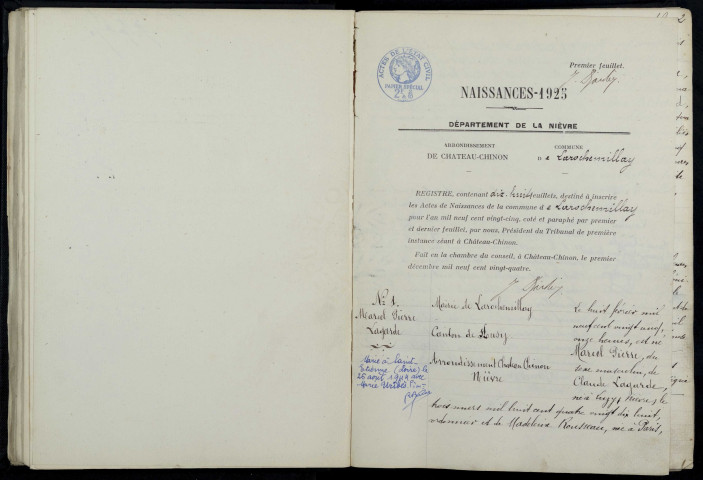 Premier feuillet.
ACTES DE L'ETAT CIVIL
PAPIER SPECIAL
NAISSANCES-1925
DÉPARTEMENT DE LA NIÈVRE
ARRONDISSEMENT
DE CHATEAU-CHINON
COMMUNE
D e Larochemillay
REGISTRE, contenant dix-huit feuillets, destiné à inscrire
les Actes de Naissances de la commune d e Larochemillay
pour l'an mil neuf cent vingt-cinq, coté et paraphé par premier
et dernier feuillet, par nous, Président du Tribunal de première
instance séant à Château-Chinon.
Fait en la chambre du conseil, à Château-Chinon, le premier
décembre mil neuf cent vingt-quatre.
N° 1.
Marcel Pierre
Lagarde
Marié à Saint
Etienne (Loire) le
26 août 1944 avec
Marie
Mairie de Larochemillay
Canton de Luzy
Arrondissement Château Chinon
Nièvre
Le huit février mil
neuf cent vingt
heures, est né
Marcel Pierre, du
sexe masculin, de
Claude Lagarde,
né à Luzy, Nièvre, le
trois mars mil huit cent quatre vingt dix huit,
et de Madeleine Rousseau, née à Paris,